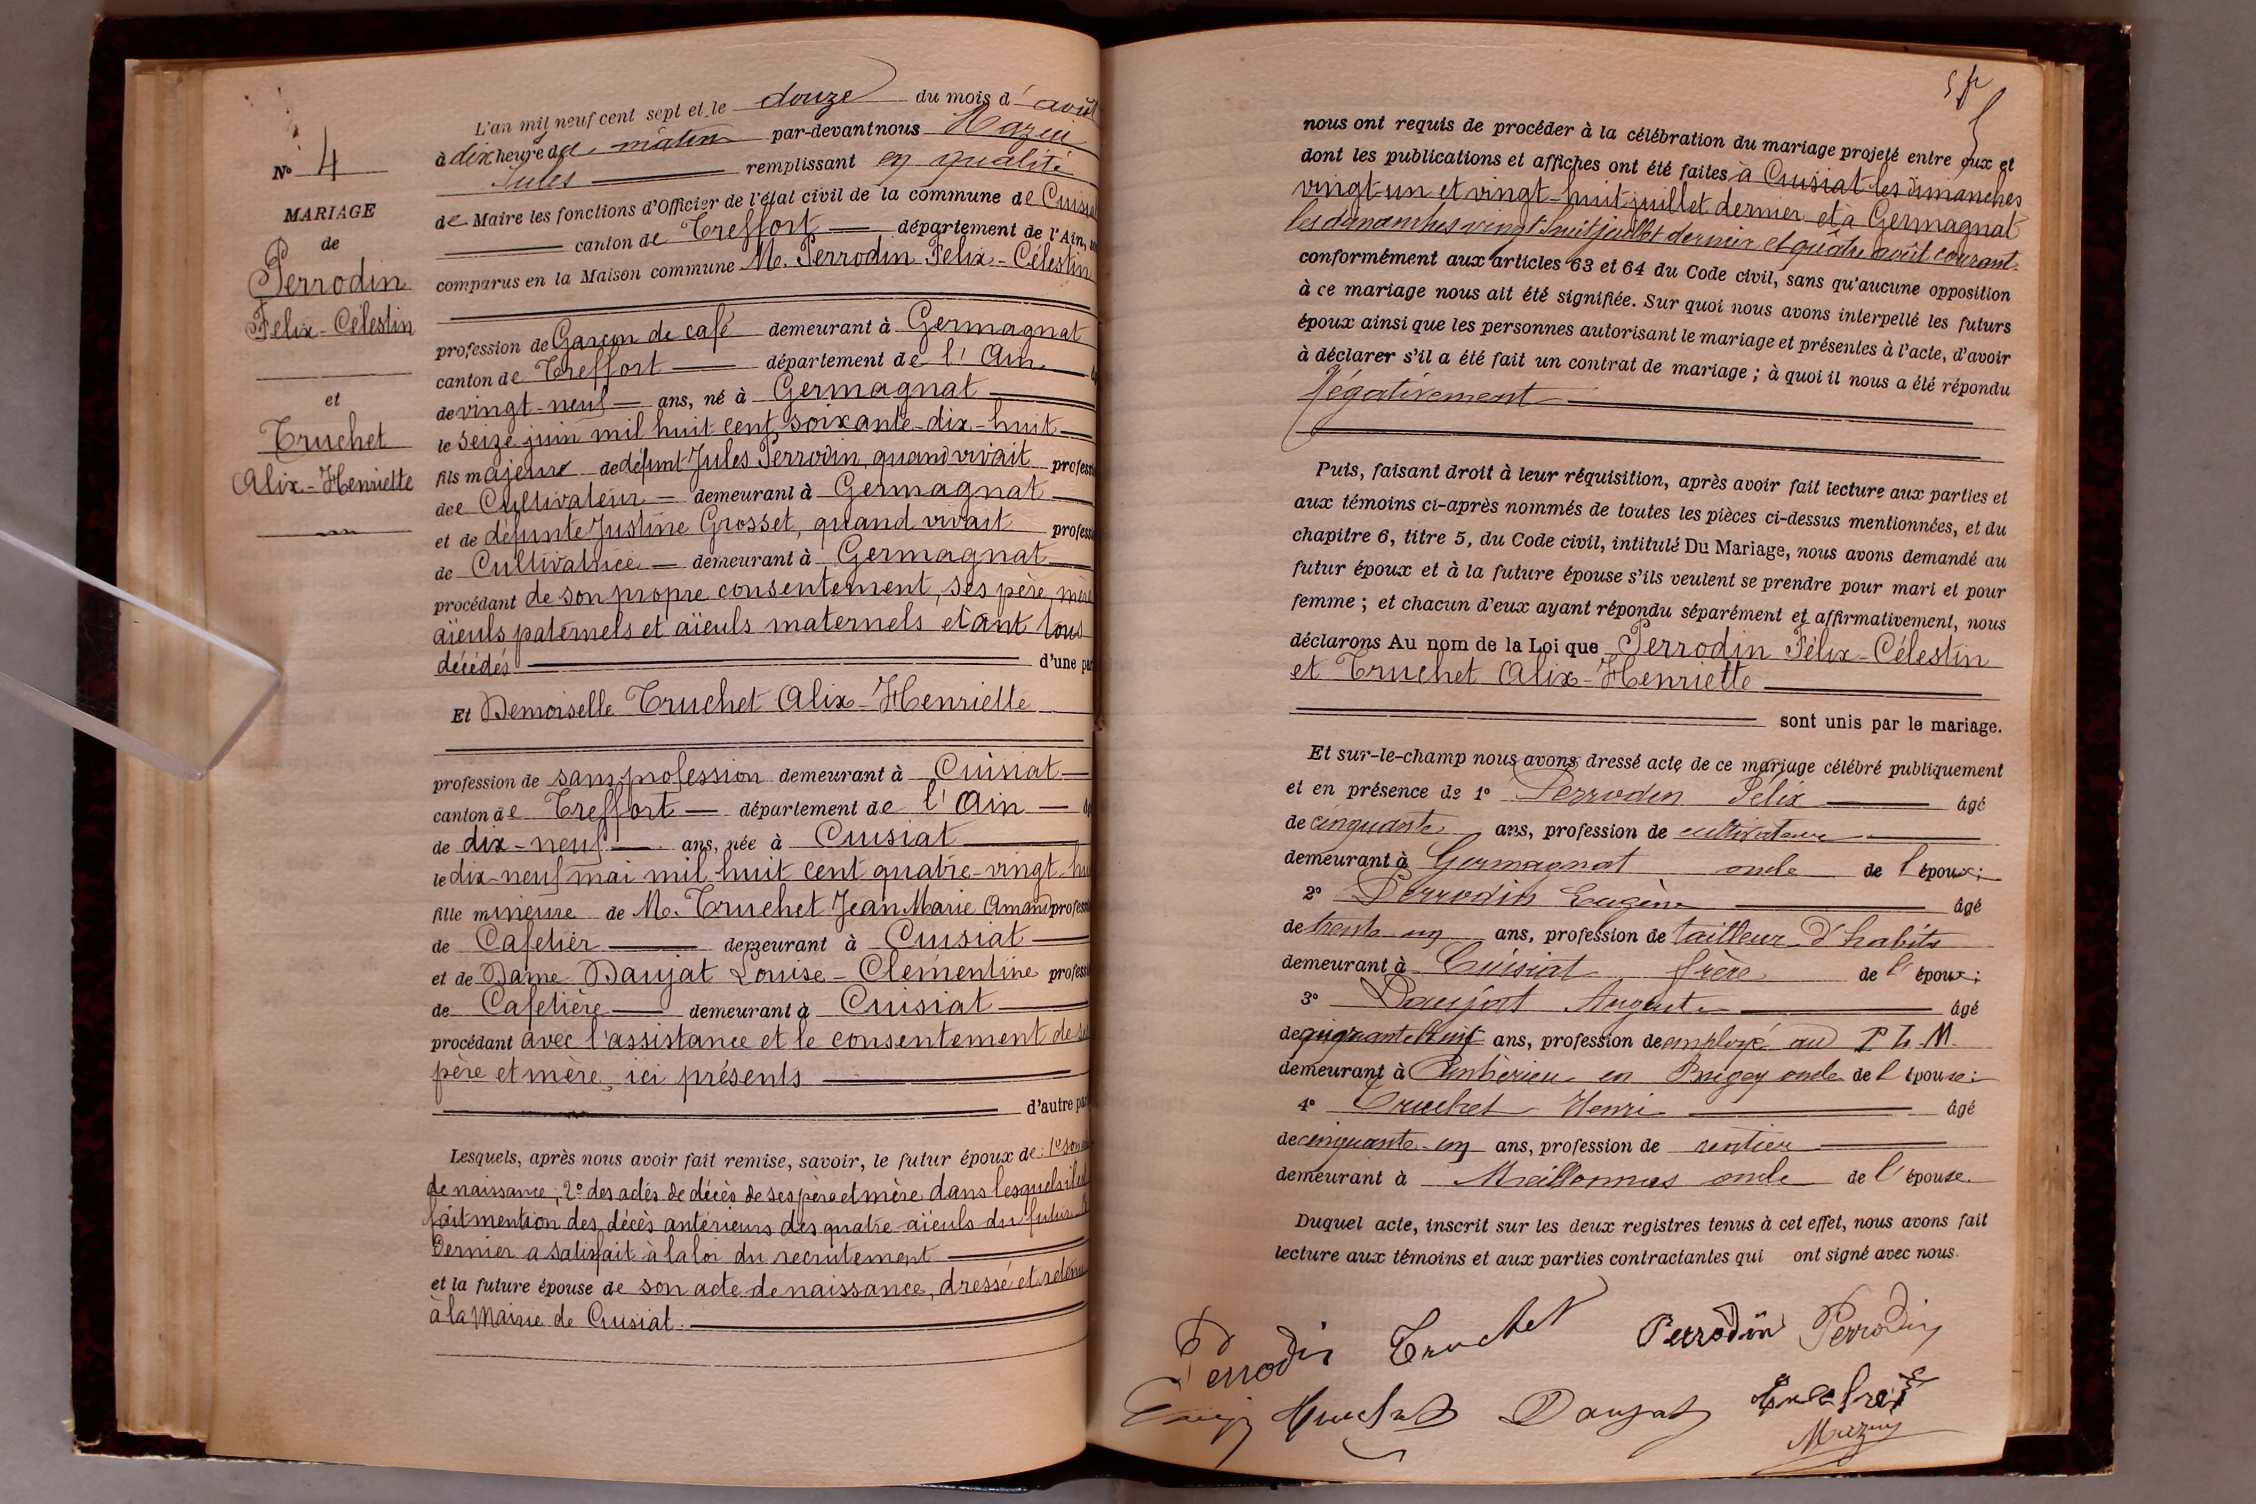 N° 4
MARIAGE
de
Perrodin
Félix-Célestin
et
Truchet
Alix-Henriette
L'an mil neuf cent sept et le douze du mois d'août
à dix heure du matin par-devant nous
Jules remplissant en qualité
de Maire les fonctions d'Officier de l'état civil de la commune de Cuisiat
canton de Treffort département de l'Ain,
comparus en la Maison commune M. Perrodin Félix-Célestin
profession de Garçon de café demeurant à Germagnat
canton de Treffort département de l'Ain
de vingt-neuf ans, né à Germagnat
le seize juin mil huit cent soixante-dix-huit
fils majeur de défunt Jules Perrodin, quand vivait
de Cultivateur demeurant à Germagnat
et de défunte Justine Grosset, quand vivait
de Cultivatrice demeurant à Germagnat
procédant de son propre consentement, ses père, mère
aïeuls paternels et aïeuls maternels étant tous
décédés d'une
Et Demoiselle Truchet Alix-Henriette
profession de sans profession demeurant à Cuisiat
canton de Treffort département de l'Ain
de dix-neuf ans, née à Cuisiat
le dix-neuf mai mil huit cent quatre-vingt
fille mineure de M. Truchet Jean Marie Amand
de Cafetier demeurant à Cuisiat
et de Dame Daujat Louise-Clémentine
de Cafetière demeurant à Cuisiat
procédant avec l'assistance et le consentement de
père et mère, ici présents
d'autre
Lesquels, après nous avoir fait remise, savoir, le futur époux de: 1° son
de naissance; 2° des actes de décès de ses père et mère dans lesquels il
fait mention des décès antérieurs des quatre aïeuls du futur
dernier a satisfait à la loi du recrutement
et la future épouse de son acte de naissance, dressé et retenu
à la Mairie de Cuisiat.
nous ont requis de procéder à la célébration du mariage projeté entre eux et
dont les publications et affiches ont été faites à Cuisiat les dimanches
vingt-un et vingt-huit juillet dernier et à Germagnat
les dimanches vingt huit juillet dernier et quatre août courant.
conformément aux articles 63 et 64 du Code civil, sans qu'aucune opposition
à ce mariage nous ait été signifiée. Sur quoi nous avons interpellé les futurs
époux ainsi que les personnes autorisant le mariage et présentes à l'acte, d'avoir
à déclarer s'il a été fait un contrat de mariage; à quoi il nous a été répondu
Négativement
Puis, faisant droit à leur réquisition, après avoir fait lecture aux parties et
aux témoins ci-après nommés de toutes les pièces ci-dessus mentionnées, et du
chapitre 6, titre 5, du Code civil, intitulé Du Mariage, nous avons demandé au
futur époux et à la future épouse s'ils veulent se prendre pour mari et pour
femme; et chacun d'eux ayant répondu séparément et affirmativement, nous
déclarons Au nom de la Loi que Perrodin Félix-Célestin
et Truchet Alix-Henriette
sont unis par le mariage.
Et sur-le-champ nous avons dressé acte de ce mariage célébré publiquement
et en présence de 1° Perrodin Félix âgé
de cinquante ans, profession de cultivateur
demeurant à Germagnat oncle de l'époux;
2° Perrodin Eugène âgé
de trente un ans, profession de tailleur d'habits
demeurant à Cuisiat frère de l'époux;
3° Daujat August âgé
de ans, profession de employé au P L M.
demeurant à Ambérieu en Bugey oncle de l'épouse;
4° Truchet Henri âgé
de cinquante-un ans, profession de rentier
demeurant à Meillonnas oncle de l'épouse.
Duquel acte, inscrit sur les deux registres tenus à cet effet, nous avons fait
lecture aux témoins et aux parties contractantes qui ont signé avec nous.
Perrodin Truchet Perrodin Perrodin
Truchet Daujat